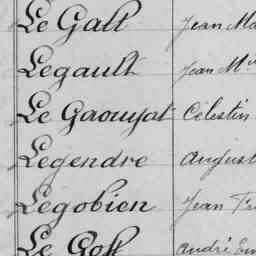 Le Galt Jean Ma
Legault Jean M
Le Gaouyat Célestin
Legendre August
Legobien Jean Fr
Le Goff André Em